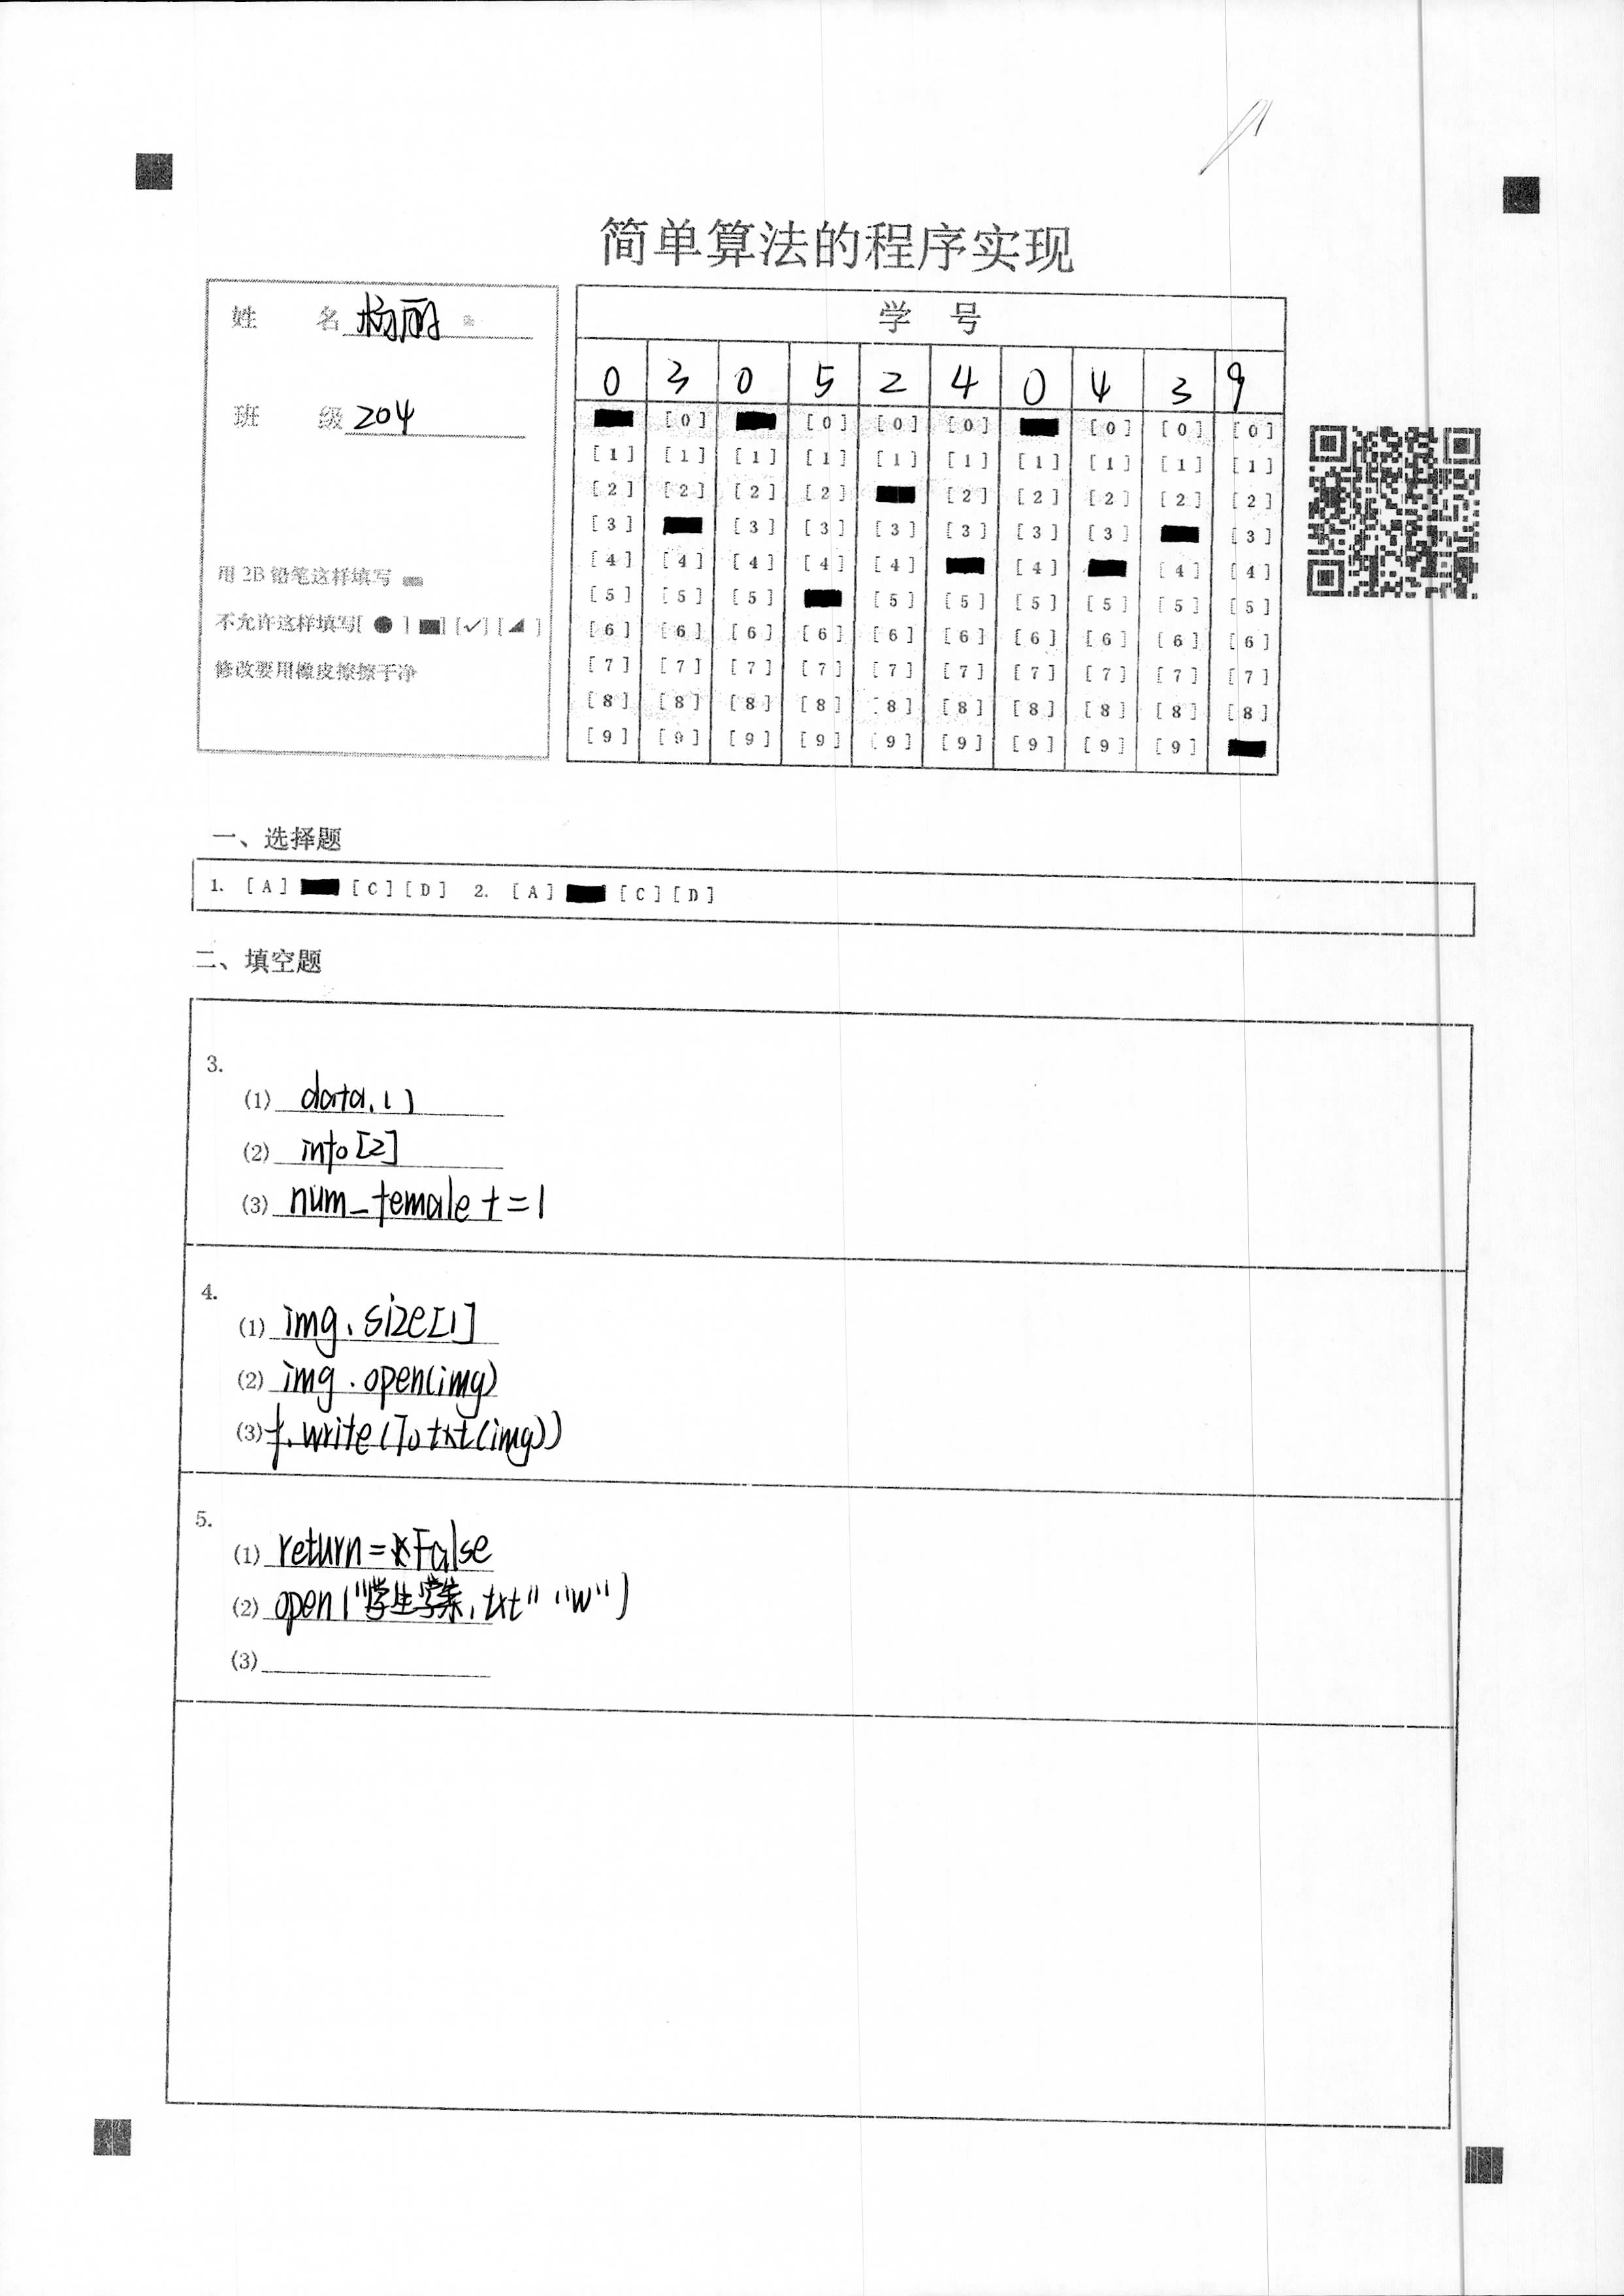 简单算法的程序实现
姓 名 杨丽
班 级 204
用 2B 铅笔这样填写
不允许这样填写[ ● ] [■] [✓] [◢ ]
修改要用橡皮擦擦干净
学 号
0 3 0 5 2 4 0 4 3 9
[0] [0] [0] [0] [0] [0] [0]
[1] [1] [1] [1] [1] [1] [1] [1] [1] [1]
[2] [2] [2] [2] [2] [2] [2] [2] [2]
[3] [3] [3] [3] [3] [3] [3] [3]
[4] [4] [4] [4] [4] [4] [4] [4]
[5] [5] [5] [5] [5] [5] [5] [5] [5]
[6] [6] [6] [6] [6] [6] [6] [6] [6] [6]
[7] [7] [7] [7] [7] [7] [7] [7] [7] [7]
[8] [8] [8] [8] [8] [8] [8] [8] [8] [8]
[9] [9] [9] [9] [9] [9] [9] [9] [9]
一、选择题
1. [A] [C] [D] 2. [A] [C] [D]
二、填空题
3.
(1) data.()
(2) info[2]
(3) num_female+=1
4.
(1) img.size[1]
(2) img.open(img)
(3) f.write(Totxt(img))
5.
(1) return=False
(2) open("学生学案.txt" "w")
(3)